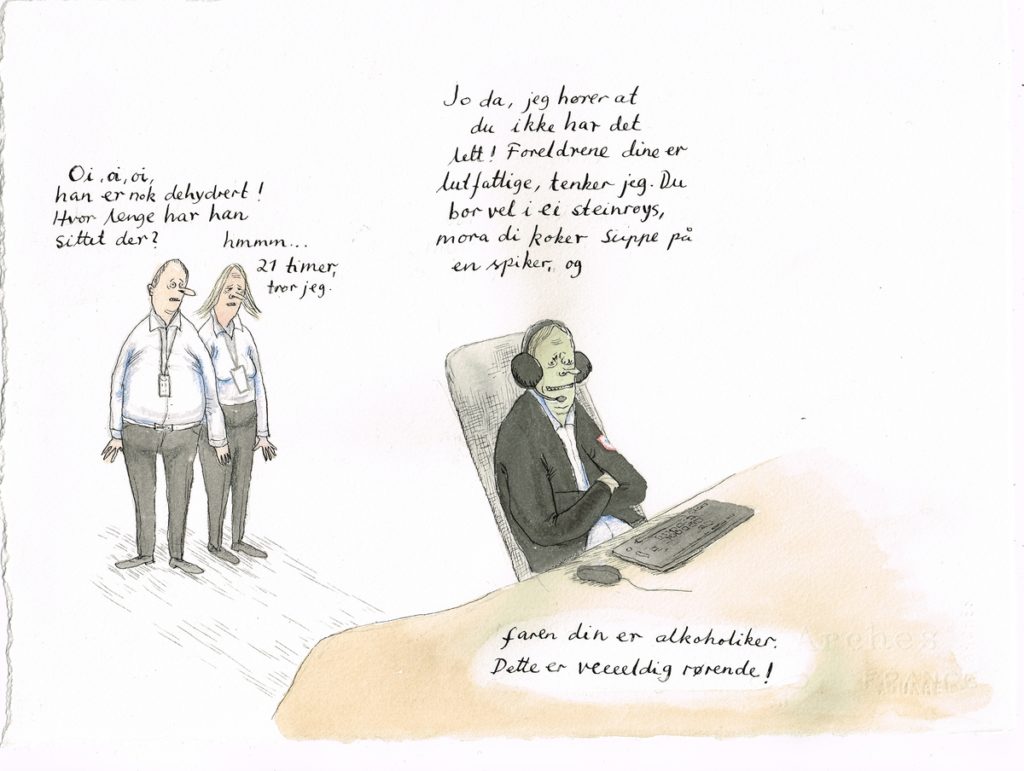 Oi, oi, oi,
han er nok dehydrert!
Hvor lenge har han
sittet der?
hmmm...
21 timer,
tror jeg.
Jo da, jeg hører at
du ikke har det
lett! Foreldrene dine er
lutfattige, tenker jeg. Du
bor vel i ei steinrøys,
mora di koker suppe på
en spiker, og
faren din er alkoholiker.
Dette er veeeldig rørende!
Arches
FRANCE